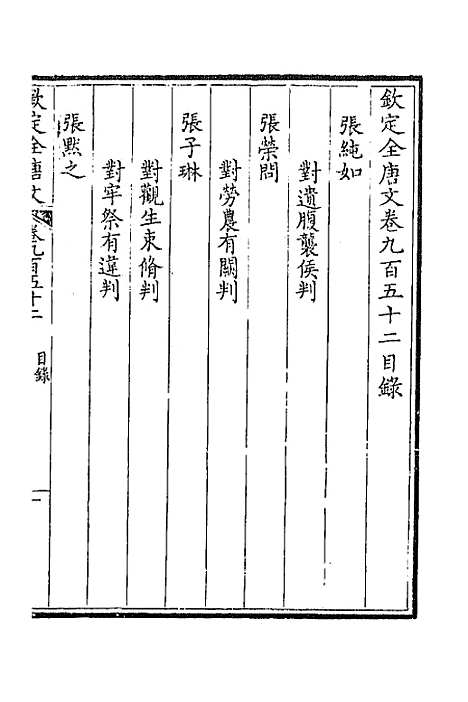 欽定全唐文卷九百五十二目錄
張純如
對遺腹襲侯判
張榮問
對勞農有闕判
張子琳
對觀生束脩判
對牢祭有違判
張黙之
欽定全唐文
卷九百五十二
目錄
一